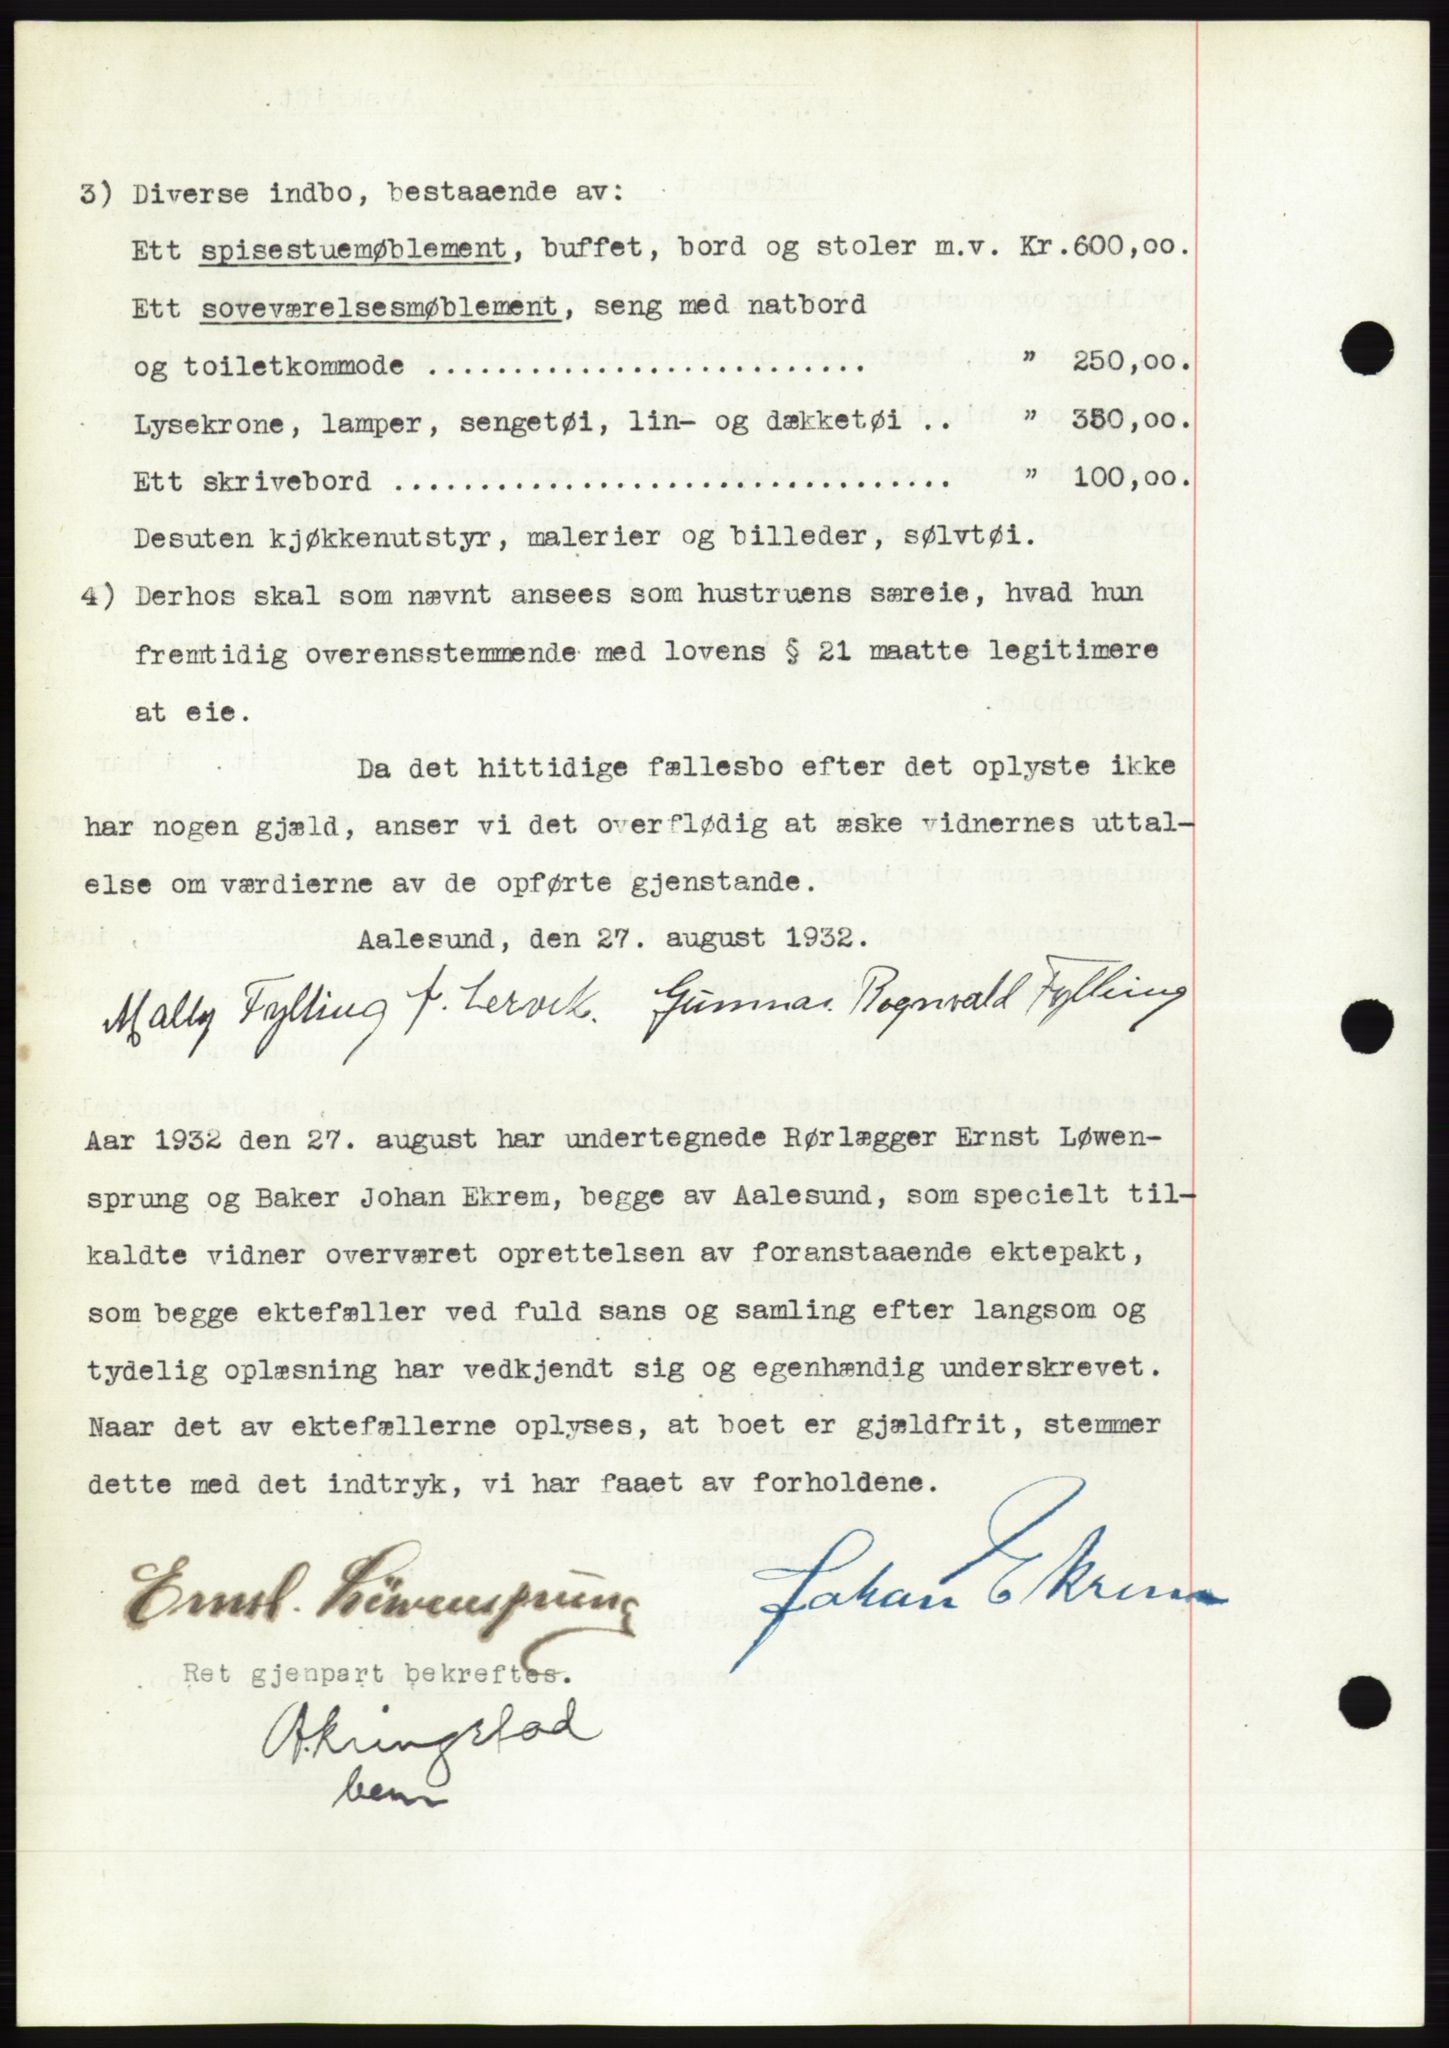 3) Diverse indbo, bestaaende av:
Ett spisestuemøblement, buffet, bord og stoler m.v. Kr.600,oo.
Ett soveværelsesmøblement, seng med natbord
og toiletkommode .......................... " 250,oo.
Lysekrone, lamper, sengetøi, lin- og dækketøi .. " 350,oo.
Ett skrivebord ................................. " 100,oo.
Desuten kjøkkenutstyr, malerier og billeder, sølvtøi.
4) Derhos skal som nævnt ansees som hustruens særeie, hvad hun
fremtidig overensstemmende med lovens § 21 maatte legitimere
at eie.
Da det hittidige fællesbo efter det oplyste ikke
har nogen gjæld, anser vi det overflødig at æske vidnernes uttal-
else om værdierne av de opførte gjenstande.
Aalesund, den 27. august 1932.
Mally Fylling f. Lervik. Gunnar Rognvald Fylling
Aar 1932 den 27. august har undertegnede Rørlægger Ernst Løwen-
sprung og Baker Johan Ekrem, begge av Aalesund, som specielt til-
kaldte vidner overværet oprettelsen av foranstaaende ektepakt,
som begge ektefæller ved fuld sans og samling efter langsom og
tydelig oplæsning har vedkjendt sig og egenhændig underskrevet.
Naar det av ektefællerne oplyses, at boet er gjældfrit, stemmer
dette med det indtryk, vi har faaet av forholdene.
Ernst. Löwensprung Johan Ekrem
Ret gjenpart bekreftes.